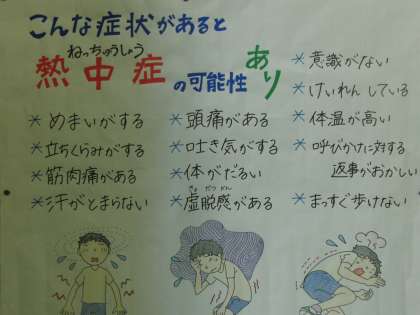 こんな症状があると
ねっちゅうしょう
熱中症の可能性あり
＊めまいがする
＊立ちくらみがする
＊筋肉痛がある
＊汗がとまらない
＊頭痛がある
＊吐き気がする
＊体がだるい
きょだつかん
＊虚脱感がある
＊意識がない
＊けいれんしている
＊体温が高い
＊呼びかけに対する
返事がおかしい
＊まっすぐ歩けない